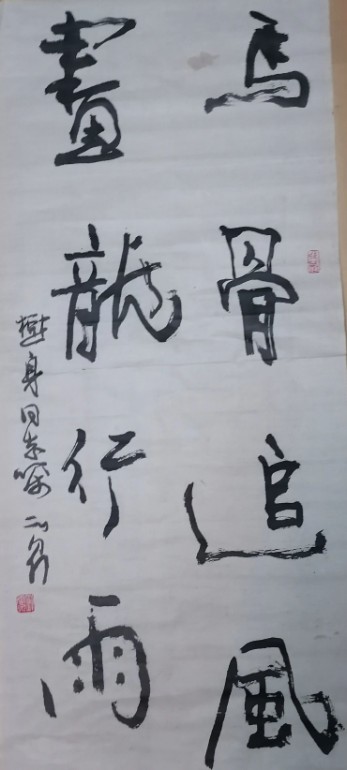 馬骨追風
畫龍行雨
懋身同志嘱